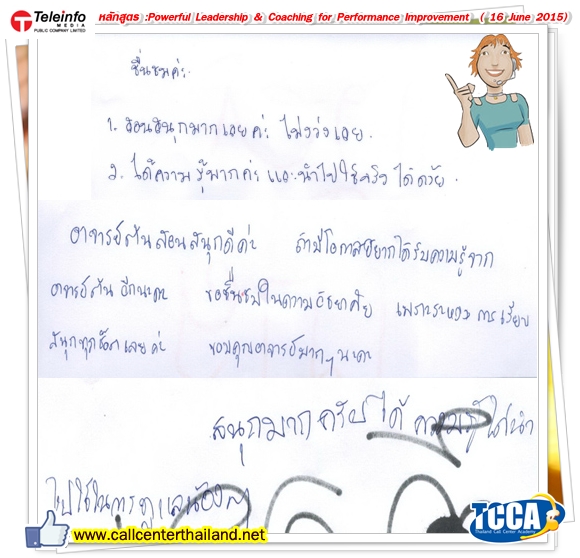 Teleinfo
MEDIA
PUBLIC COMPANY LIMITED
หลักสูตร :Powerful Leadership & Coaching for Performance Improvement ( 16 June 2015)
ชื่นชมค่ะ
1. สอนสนุกมากเลยค่ะ ไม่ง่วงเลย.
2. ได้ความรู้มากค่ะ และนำไปใช้จริงได้ด้วย.
อาจารย์สอนสนุกดีค่ะ ถ้ามีโอกาสอยากได้รับความรู้จาก
อาจารย์ อีกนะคะ ขอชื่นชมในความอัธยาศัย เพราะระหว่างการเรียน
สนุกทุก เลยค่ะ ขอบคุณอาจารย์มากๆนะคะ
สนุกมากครับได้ความรู้ได้นำ
ไปใช้ในการดูแลน้อง
www.callcenterthailand.net
TCCA
Thailand Call Center Academy